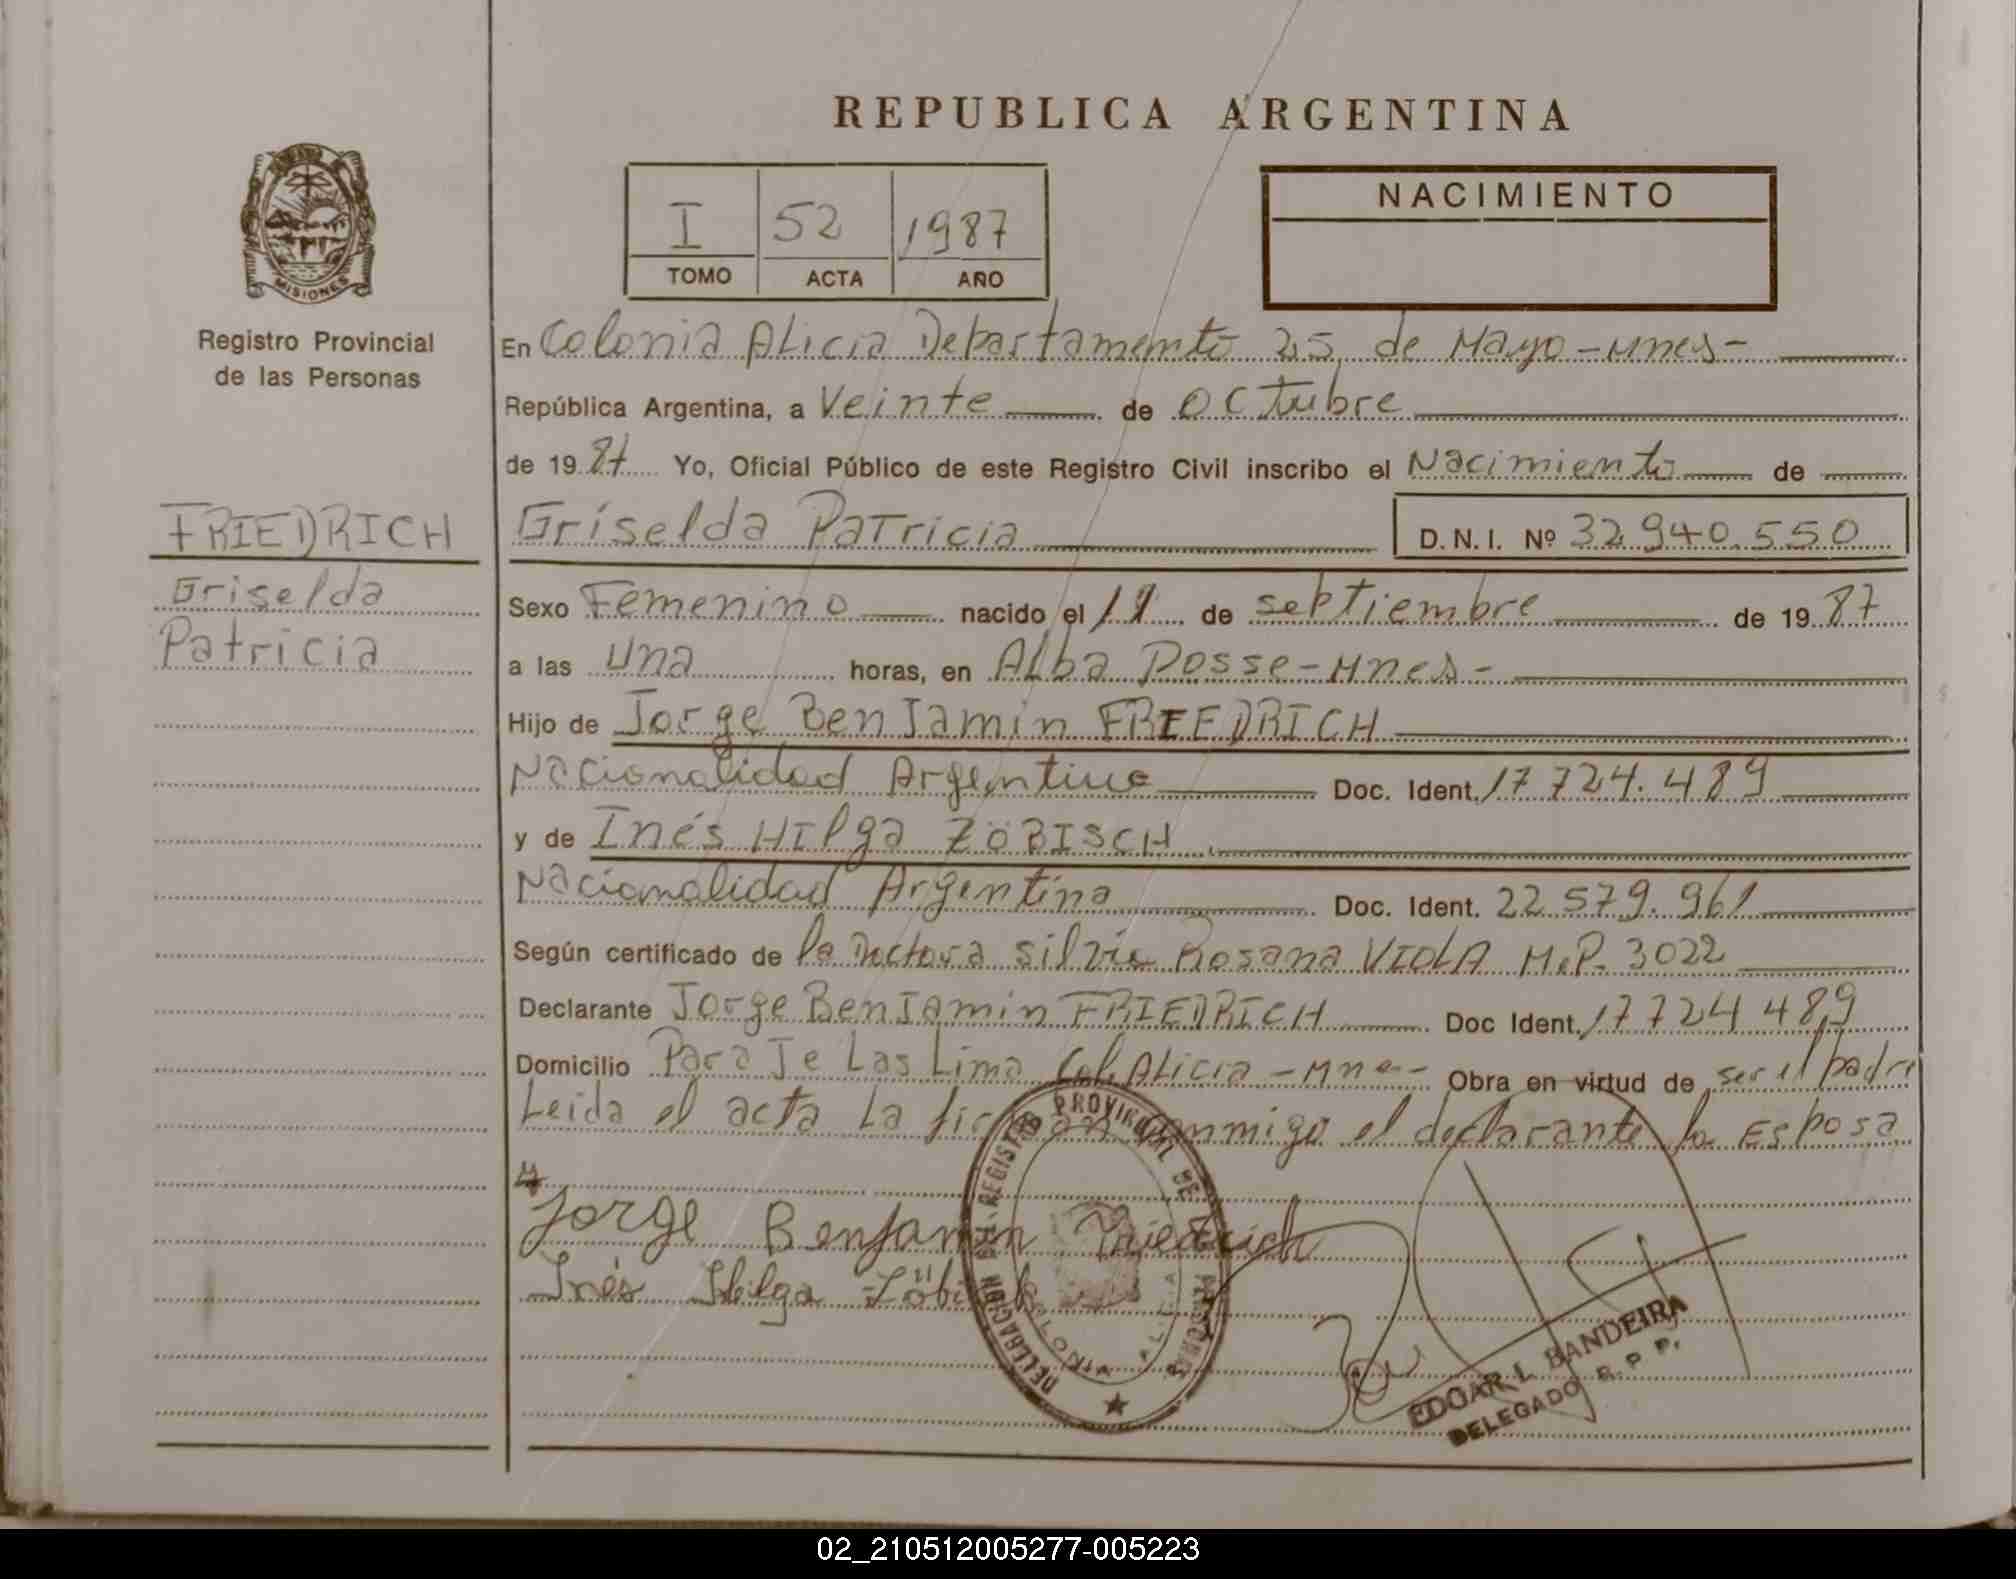 REPUBLICA ARGENTINA
MISIONES
Registro Provincial
de las Personas
I 52 1987
TOMO ACTA AÑO
NACIMIENTO
En Colonia Alicia Departamento 25 de Mayo - Mnes -
República Argentina, a Veinte de Octubre
de 19 87 Yo, Oficial Público de este Registro Civil inscribo el Nacimiento de
FRIEDRICH
Griselda
Patricia
Gríselda Patricia D.N.I. Nº 32.940.550
Sexo Femenino nacido el 11 de septiembre de 19 87
a las Una horas, en Alba Posse - Mnes -
Hijo de Jorge Benjamin FRIEDRICH
Nacionalidad Argentino Doc. Ident. 17.724.489
y de Inés Hilga ZÖBISCH
Nacionalidad Argentina Doc. Ident. 22.579.961
Según certificado de la Doctora Silvia Rosana VIOLA M.P. 3022
Declarante Jorge Benjamin FRIEDRICH Doc Ident. 17 724 489
Domicilio Paraje Las Lima Col. Alicia - Mne - Obra en virtud de ser el padre
Leida el acta La firman conmigo el declarante la Esposa
Jorge Benjamin Friedrich
Inés Hilga Zöbisch
DELEGACION DEL REGISTRO PROVINCIAL DE LAS PERSONAS
COLONIA ALICIA
EDGAR L. BANDEIRA
DELEGADO R. P. P.
02_210512005277-005223